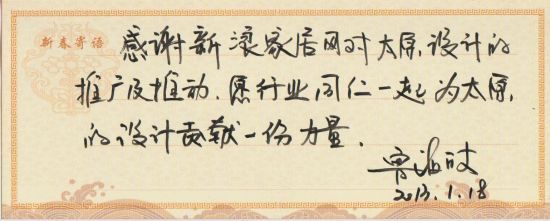 新春寄语
感谢新浪家居网对太原设计的
推广及推动.愿行业同仁一起为太原
的设计贡献一份力量.
2013.1.18